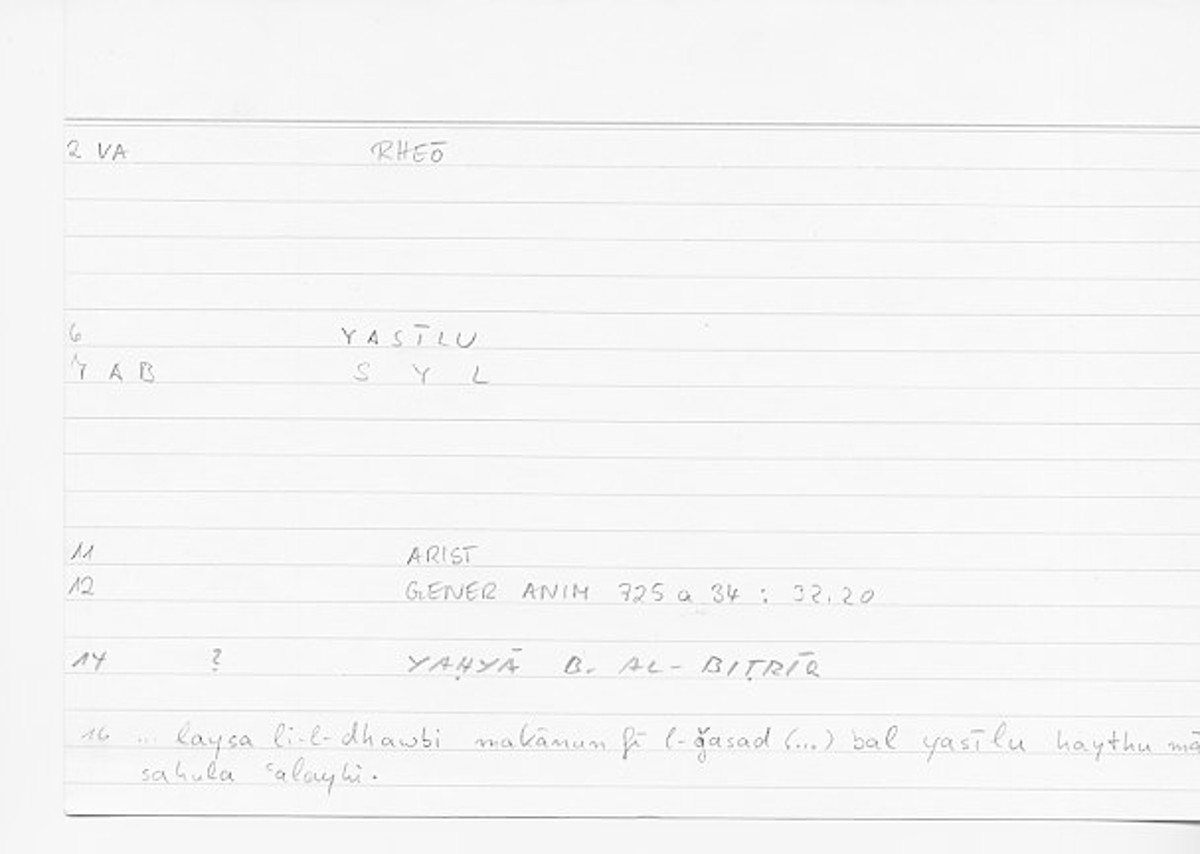 2 VA RHEŌ
6 YASĪLU
7 A B S Y L
11 ARIST
12 GENER ANIM 725 a 34 : 32.20
14 ? YAḤYĀ B. AL-BIṬRĪQ
16 ... laysa li-l-dhawbi makānun fī l-ǧasad (...) bal yasīlu haythu mā
sahula ʿalayhi.